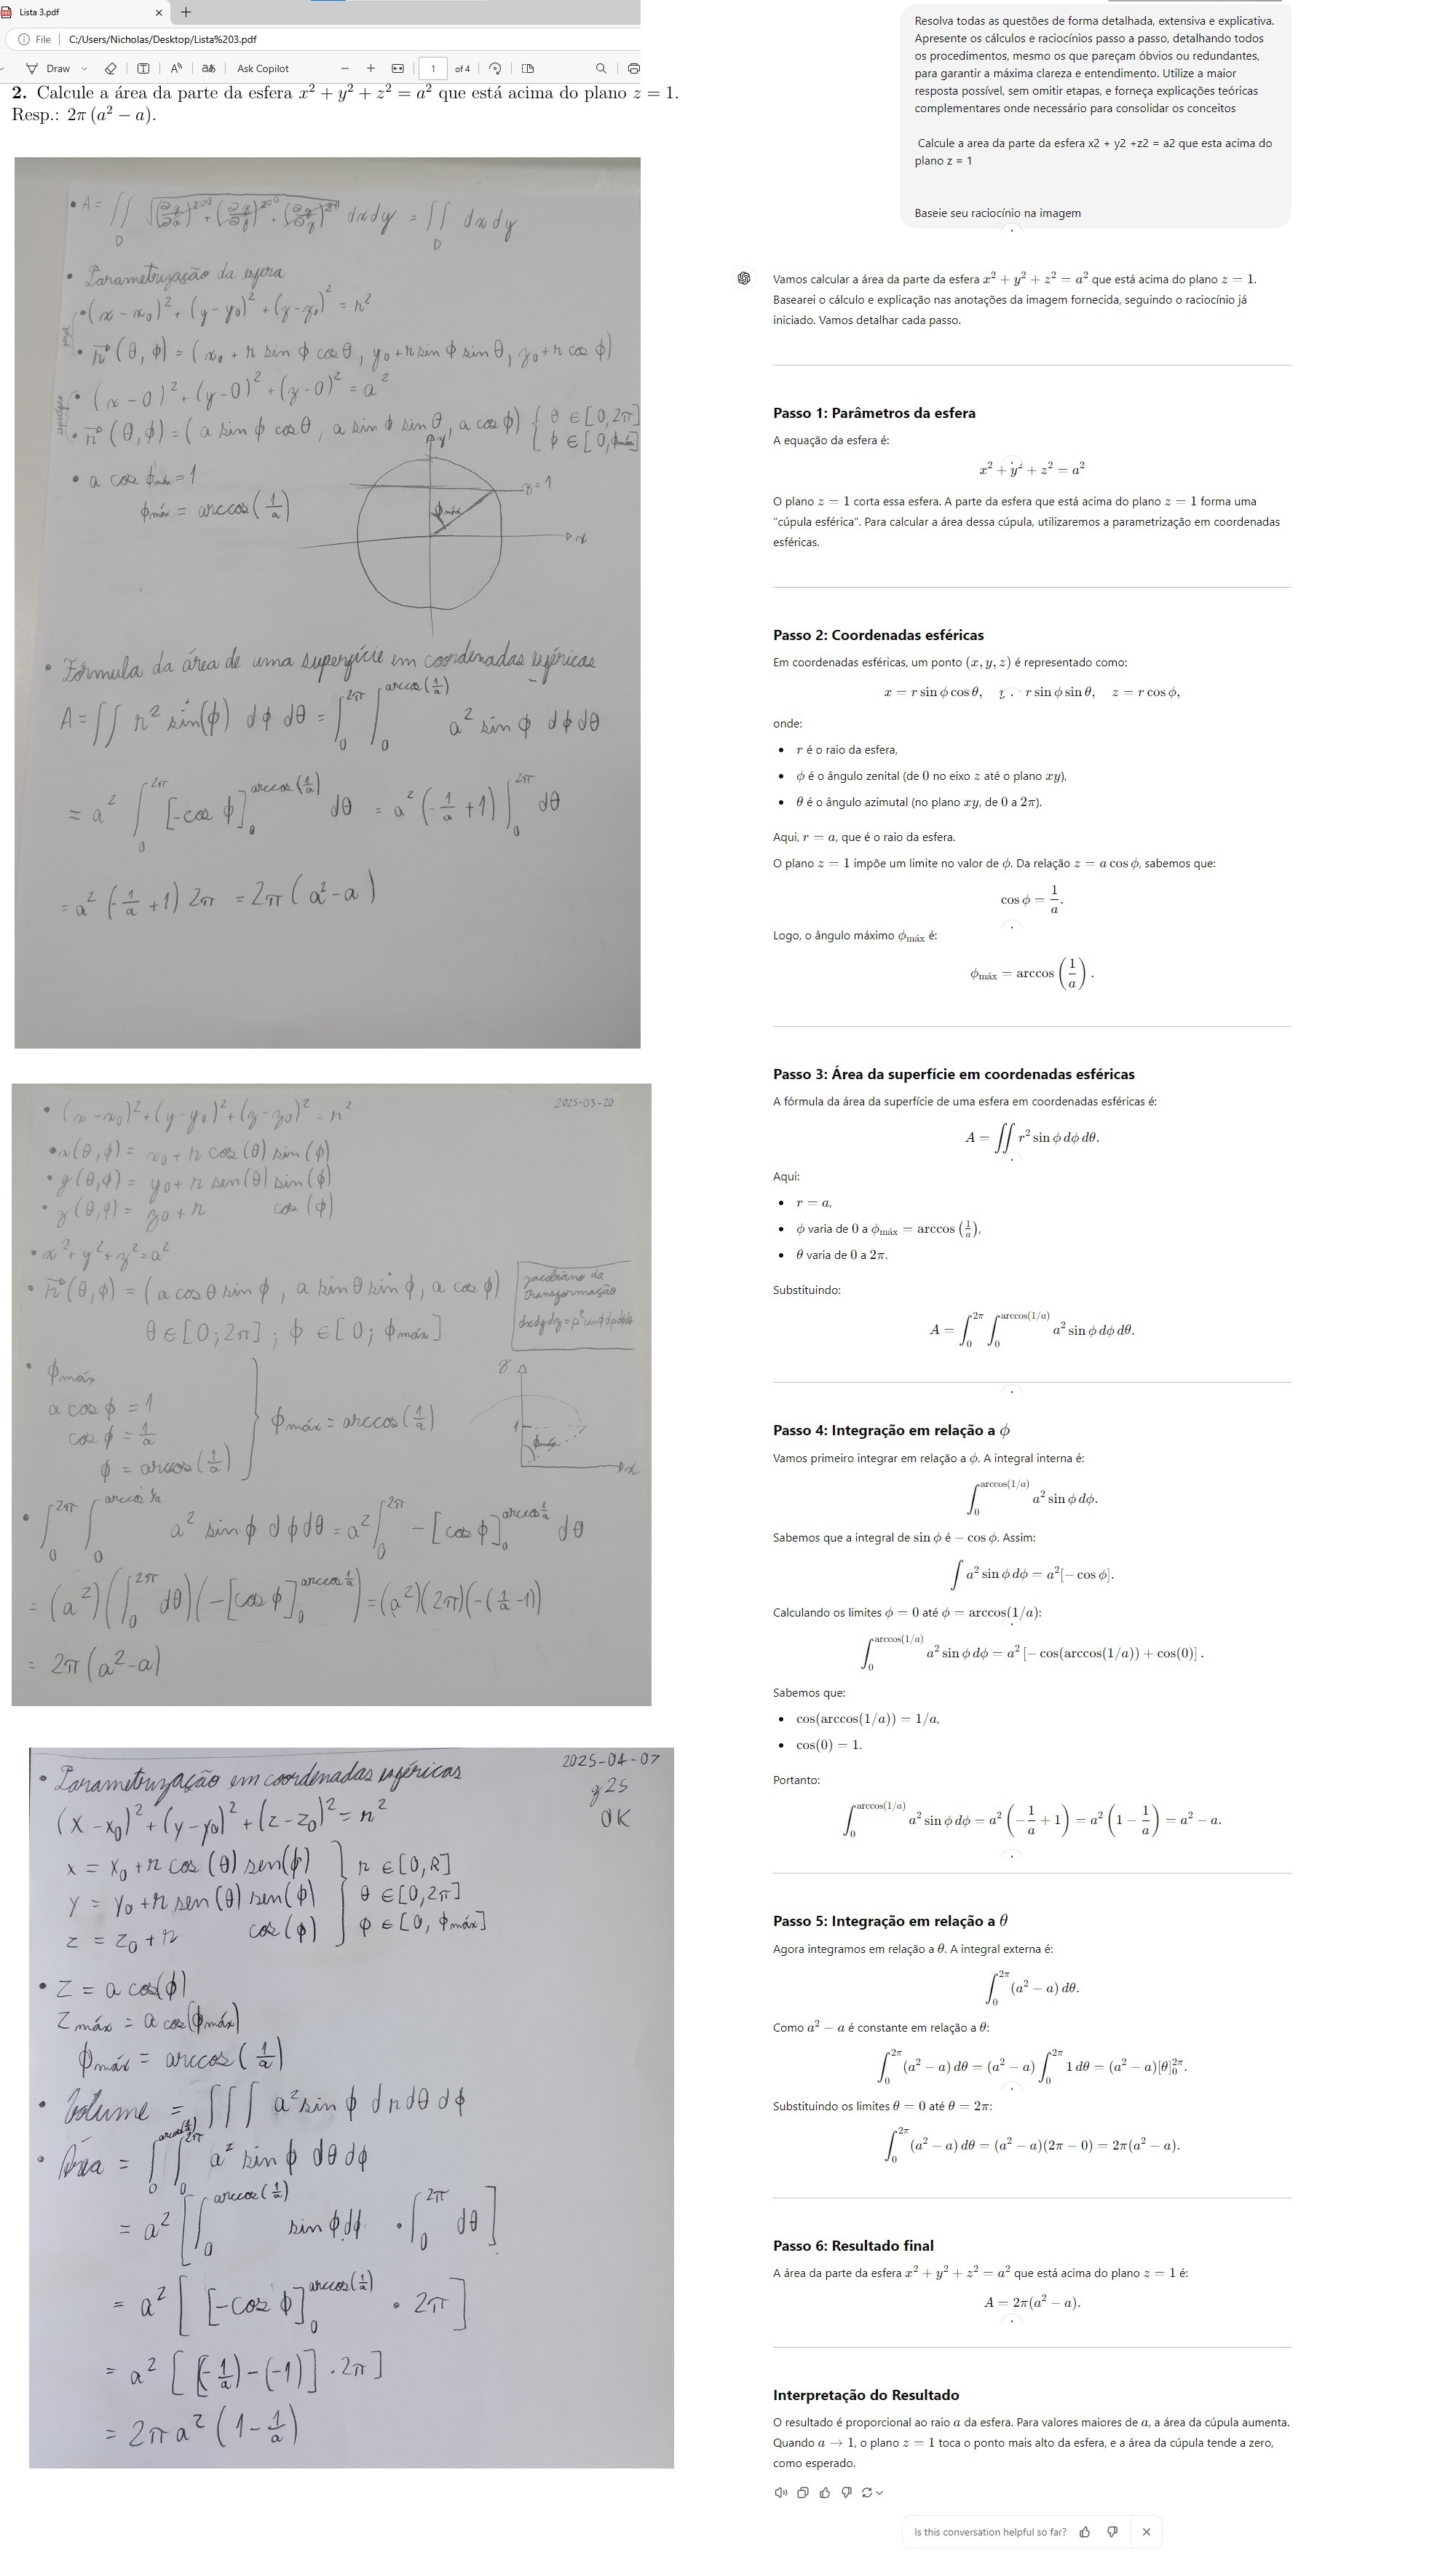 Lista 3.pdf
File | C:/Users/Nicholas/Desktop/Lista%203.pdf
Draw Ask Copilot 1 of 4
2. Calcule a área da parte da esfera x² + y² + z² = a² que está acima do plano z = 1.
Resp.: 2π (a² − a).
• Parametrização da esfera
• (x − x₀)² + (y − y₀)² + (z − z₀)² = r²
• r⃗ (θ, φ) = (x₀ + r sin φ cos θ, y₀ + r sin φ sin θ, z₀ + r cos φ)
• (x − 0)² + (y − 0)² + (z − 0)² = a²
• r⃗ (θ, φ) = (a sin φ cos θ, a sin φ sin θ, a cos φ) { θ ∈ [0, 2π] { φ ∈ [0, φmáx]
• a cos φmáx = 1
φmáx = arccos(1/a)
z = 1
φmáx
• Fórmula da área de uma superfície em coordenadas esféricas
A = ∬ r² sin(φ) dφ dθ = ∫₀^2π ∫₀^arccos(1/a) a² sin φ dφ dθ
= a² ∫₀^2π [−cos φ]₀^arccos(1/a) dθ = a² (−1/a + 1) ∫₀^2π dθ
= a² (−1/a + 1) 2π = 2π (a² − a)
2025-03-20
• (x − x₀)² + (y − y₀)² + (z − z₀)² = r²
• x(θ, φ) = x₀ + r cos(θ) sin(φ)
• y(θ, φ) = y₀ + r sen(θ) sin(φ)
• z(θ, φ) = z₀ + r cos(φ)
• x² + y² + z² = a²
• r⃗ (θ, φ) = (a cos θ sin φ, a sin θ sin φ, a cos φ)
θ ∈ [0; 2π] ; φ ∈ [0; φmáx]
jacobiano da
transformação
• φmáx
a cos φ = 1
cos φ = 1/a
φ = arccos(1/a)
φmáx = arccos(1/a)
z
1
φmáx
x
• ∫₀^2π ∫₀^arccos 1/a a² sin φ dφ dθ = a² ∫₀^2π −[cos φ]₀^arccos 1/a dθ
= (a²)(∫₀^2π dθ)(−[cos φ]₀^arccos 1/a) = (a²)(2π)(−(1/a − 1))
= 2π (a² − a)
2025-04-07
q25
OK
• Parametrização em coordenadas esféricas
(x − x₀)² + (y − y₀)² + (z − z₀)² = r²
x = x₀ + r cos(θ) sen(φ) r ∈ [0, R]
y = y₀ + r sen(θ) sen(φ) θ ∈ [0, 2π]
z = z₀ + r cos(φ) φ ∈ [0, φmáx]
• z = a cos(φ)
zmáx = a cos(φmáx)
φmáx = arccos(1/a)
• Volume = ∭ a² sin φ dr dθ dφ
• Área = ∫₀^arccos(1/a) ∫₀^2π a² sin φ dθ dφ
= a² [∫₀^arccos(1/a) sin φ dφ · ∫₀^2π dθ]
= a² [[−cos φ]₀^arccos(1/a) · 2π]
= a² [(−1/a) − (−1)] · 2π]
= 2π a² (1 − 1/a)
Resolva todas as questões de forma detalhada, extensiva e explicativa.
Apresente os cálculos e raciocínios passo a passo, detalhando todos
os procedimentos, mesmo os que pareçam óbvios ou redundantes,
para garantir a máxima clareza e entendimento. Utilize a maior
resposta possível, sem omitir etapas, e forneça explicações teóricas
complementares onde necessário para consolidar os conceitos
Calcule a area da parte da esfera x2 + y2 +z2 = a2 que esta acima do
plano z = 1
Baseie seu raciocínio na imagem
Vamos calcular a área da parte da esfera x² + y² + z² = a² que está acima do plano z = 1.
Basearei o cálculo e explicação nas anotações da imagem fornecida, seguindo o raciocínio já
iniciado. Vamos detalhar cada passo.
Passo 1: Parâmetros da esfera
A equação da esfera é:
x² + y² + z² = a²
O plano z = 1 corta essa esfera. A parte da esfera que está acima do plano z = 1 forma uma
"cúpula esférica". Para calcular a área dessa cúpula, utilizaremos a parametrização em coordenadas
esféricas.
Passo 2: Coordenadas esféricas
Em coordenadas esféricas, um ponto (x, y, z) é representado como:
x = r sin φ cos θ, r sin φ sin θ, z = r cos φ,
onde:
• r é o raio da esfera,
• φ é o ângulo zenital (de 0 no eixo z até o plano xy),
• θ é o ângulo azimutal (no plano xy, de 0 a 2π).
Aqui, r = a, que é o raio da esfera.
O plano z = 1 impõe um limite no valor de φ. Da relação z = a cos φ, sabemos que:
cos φ = 1/a.
Logo, o ângulo máximo φmáx é:
φmáx = arccos (1/a) .
Passo 3: Área da superfície em coordenadas esféricas
A fórmula da área da superfície de uma esfera em coordenadas esféricas é:
A = ∬ r² sin φ dφ dθ.
Aqui:
• r = a,
• φ varia de 0 a φmáx = arccos (1/a),
• θ varia de 0 a 2π.
Substituindo:
A = ∫₀^2π ∫₀^arccos(1/a) a² sin φ dφ dθ.
Passo 4: Integração em relação a φ
Vamos primeiro integrar em relação a φ. A integral interna é:
∫₀^arccos(1/a) a² sin φ dφ.
Sabemos que a integral de sin φ é − cos φ. Assim:
∫ a² sin φ dφ = a²[− cos φ].
Calculando os limites φ = 0 até φ = arccos(1/a):
∫₀^arccos(1/a) a² sin φ dφ = a² [− cos(arccos(1/a)) + cos(0)] .
Sabemos que:
• cos(arccos(1/a)) = 1/a,
• cos(0) = 1.
Portanto:
∫₀^arccos(1/a) a² sin φ dφ = a² (−1/a + 1) = a² (1 − 1/a) = a² − a.
Passo 5: Integração em relação a θ
Agora integramos em relação a θ. A integral externa é:
∫₀^2π (a² − a) dθ.
Como a² − a é constante em relação a θ:
∫₀^2π (a² − a) dθ = (a² − a) ∫₀^2π 1 dθ = (a² − a)[θ]₀^2π.
Substituindo os limites θ = 0 até θ = 2π:
∫₀^2π (a² − a) dθ = (a² − a)(2π − 0) = 2π(a² − a).
Passo 6: Resultado final
A área da parte da esfera x² + y² + z² = a² que está acima do plano z = 1 é:
A = 2π(a² − a).
Interpretação do Resultado
O resultado é proporcional ao raio a da esfera. Para valores maiores de a, a área da cúpula aumenta.
Quando a → 1, o plano z = 1 toca o ponto mais alto da esfera, e a área da cúpula tende a zero,
como esperado.
Is this conversation helpful so far?